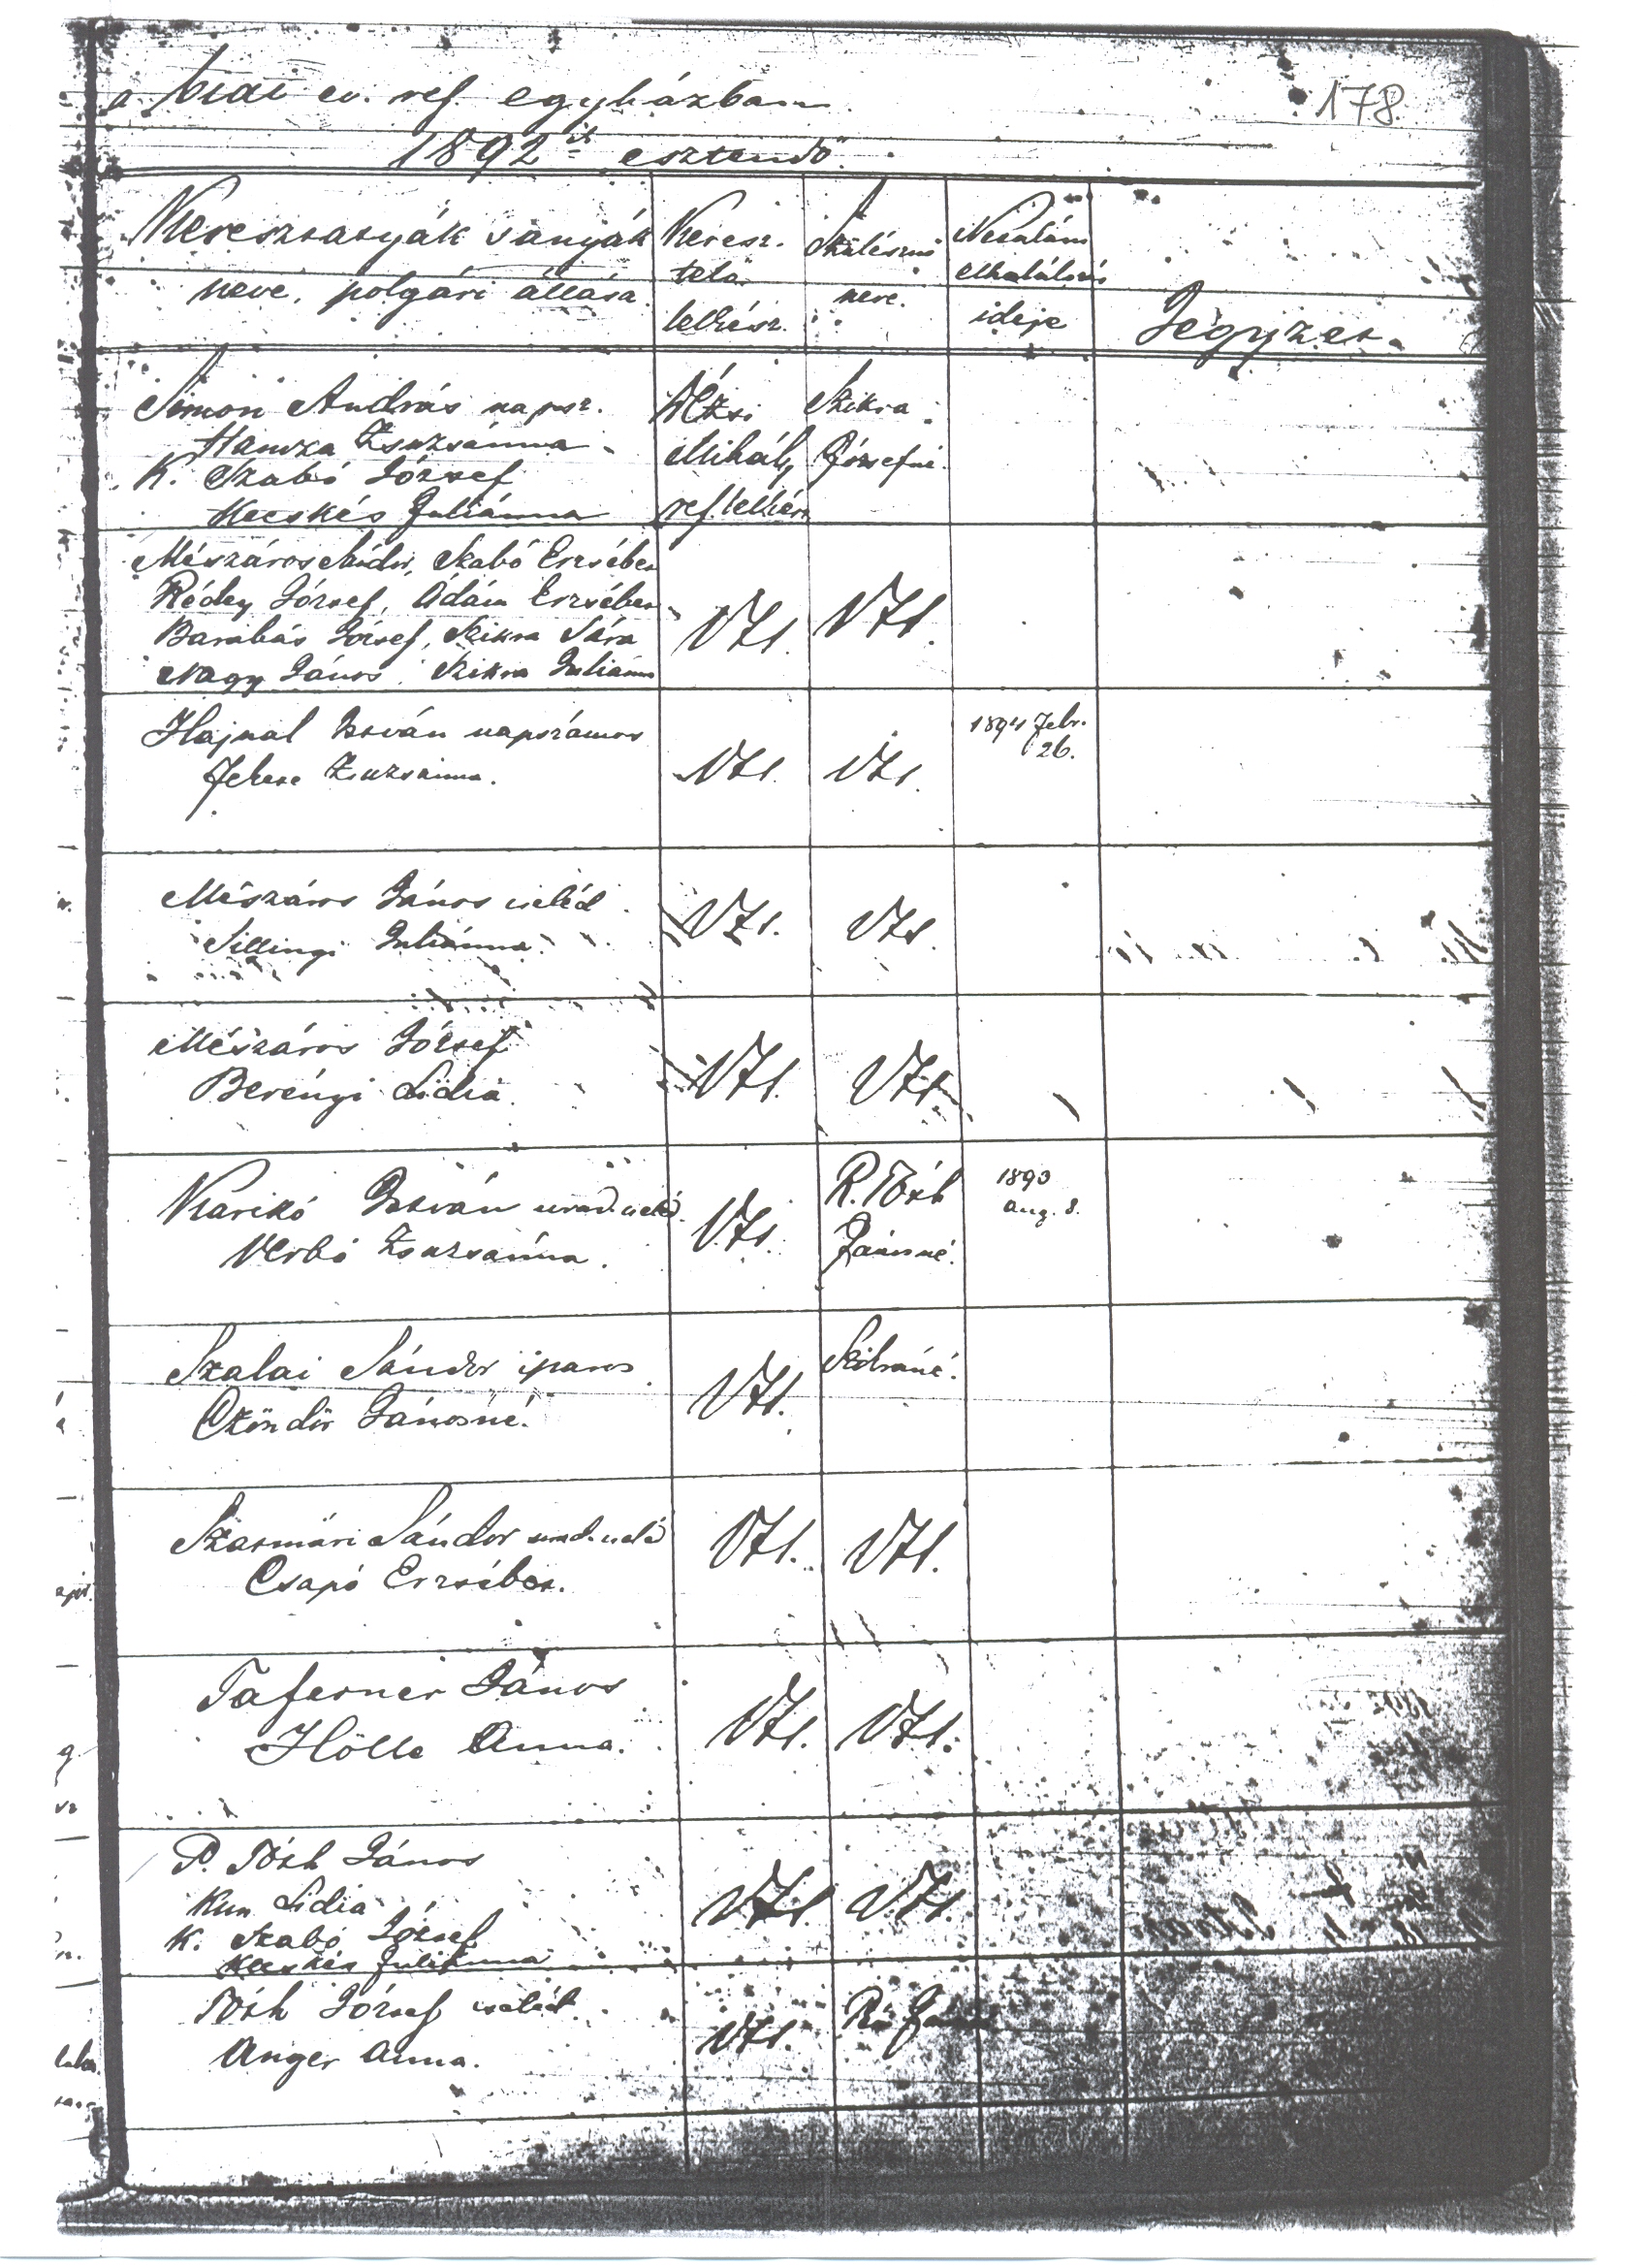 a biai ev. ref. egyházban.
178.
1892ik esztendő.
Keresztatyák s anyák
neve, polgári állása.
Keresz-
telő
lelkész.
Szülésznő
neve.
Netalán
elhalálozás
ideje
Jegyzet.
Simon András napsz.
Hancza Zsuzsánna
K. Szabó József
Kecskés Juliánna
Vézsi
Mihály
ref. lelkész
Szikra
Józsefné.
Mészáros Sándor, Szabó Erzsébet
Rédey József, Ádám Erzsébet
Barabás József, Szikra Sára
Nagy János, Szikra Juliánna
Hajnal István napszámos
Fekete Zsuzsánna.
1894 Febr.
26.
Mészáros János cseléd
Sillingi Juliánna.
Mészáros József
Berényi Lidia.
Karikó István urad. cseléd.
Verbó Zsuzsánna.
R. Tóth
Jánosné.
1893
Aug. 8.
Szalai Sándor iparos
Czöndör Jánosné.
Szikráné.
Szatmári Sándor urad. cseléd
Csapó Erzsébet.
Taferner János
Hölle Anna.
P. Tóth János
Kun Lidia
K. Szabó József
Kecskés Juliánna
Tóth József cseléd.
Anger Anna.